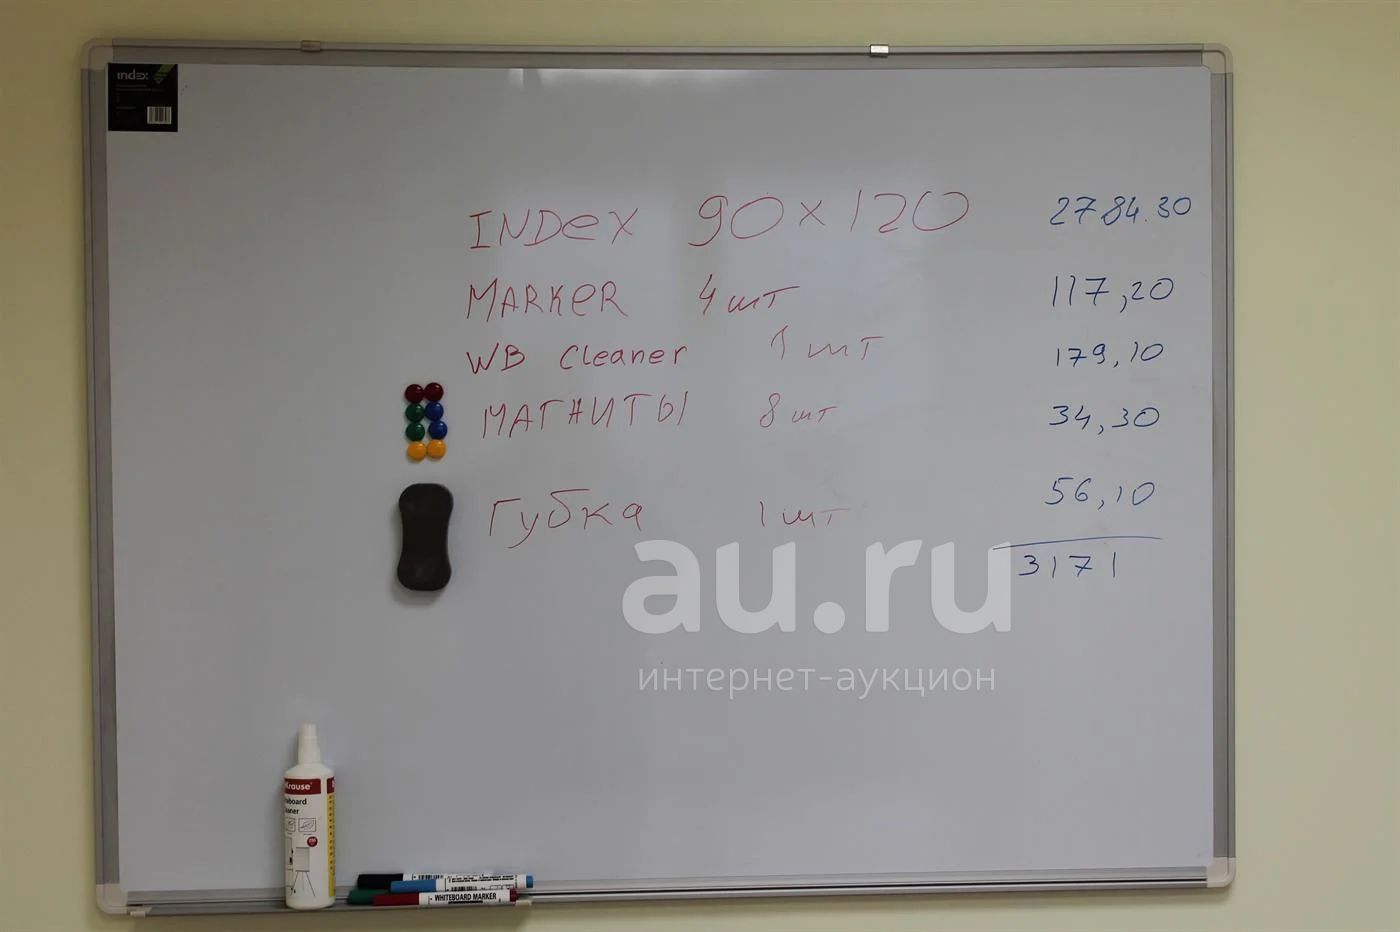 index
INDEX 90 x 120 2784.30
MARKER 4 шт 117,20
WB Cleaner 1 шт 179,10
МАГНИТЫ 8 шт 34,30
Губка 1 шт 56,10
3171
au.ru
интернет-аукцион
Krause
WHITEBOARD MARKER